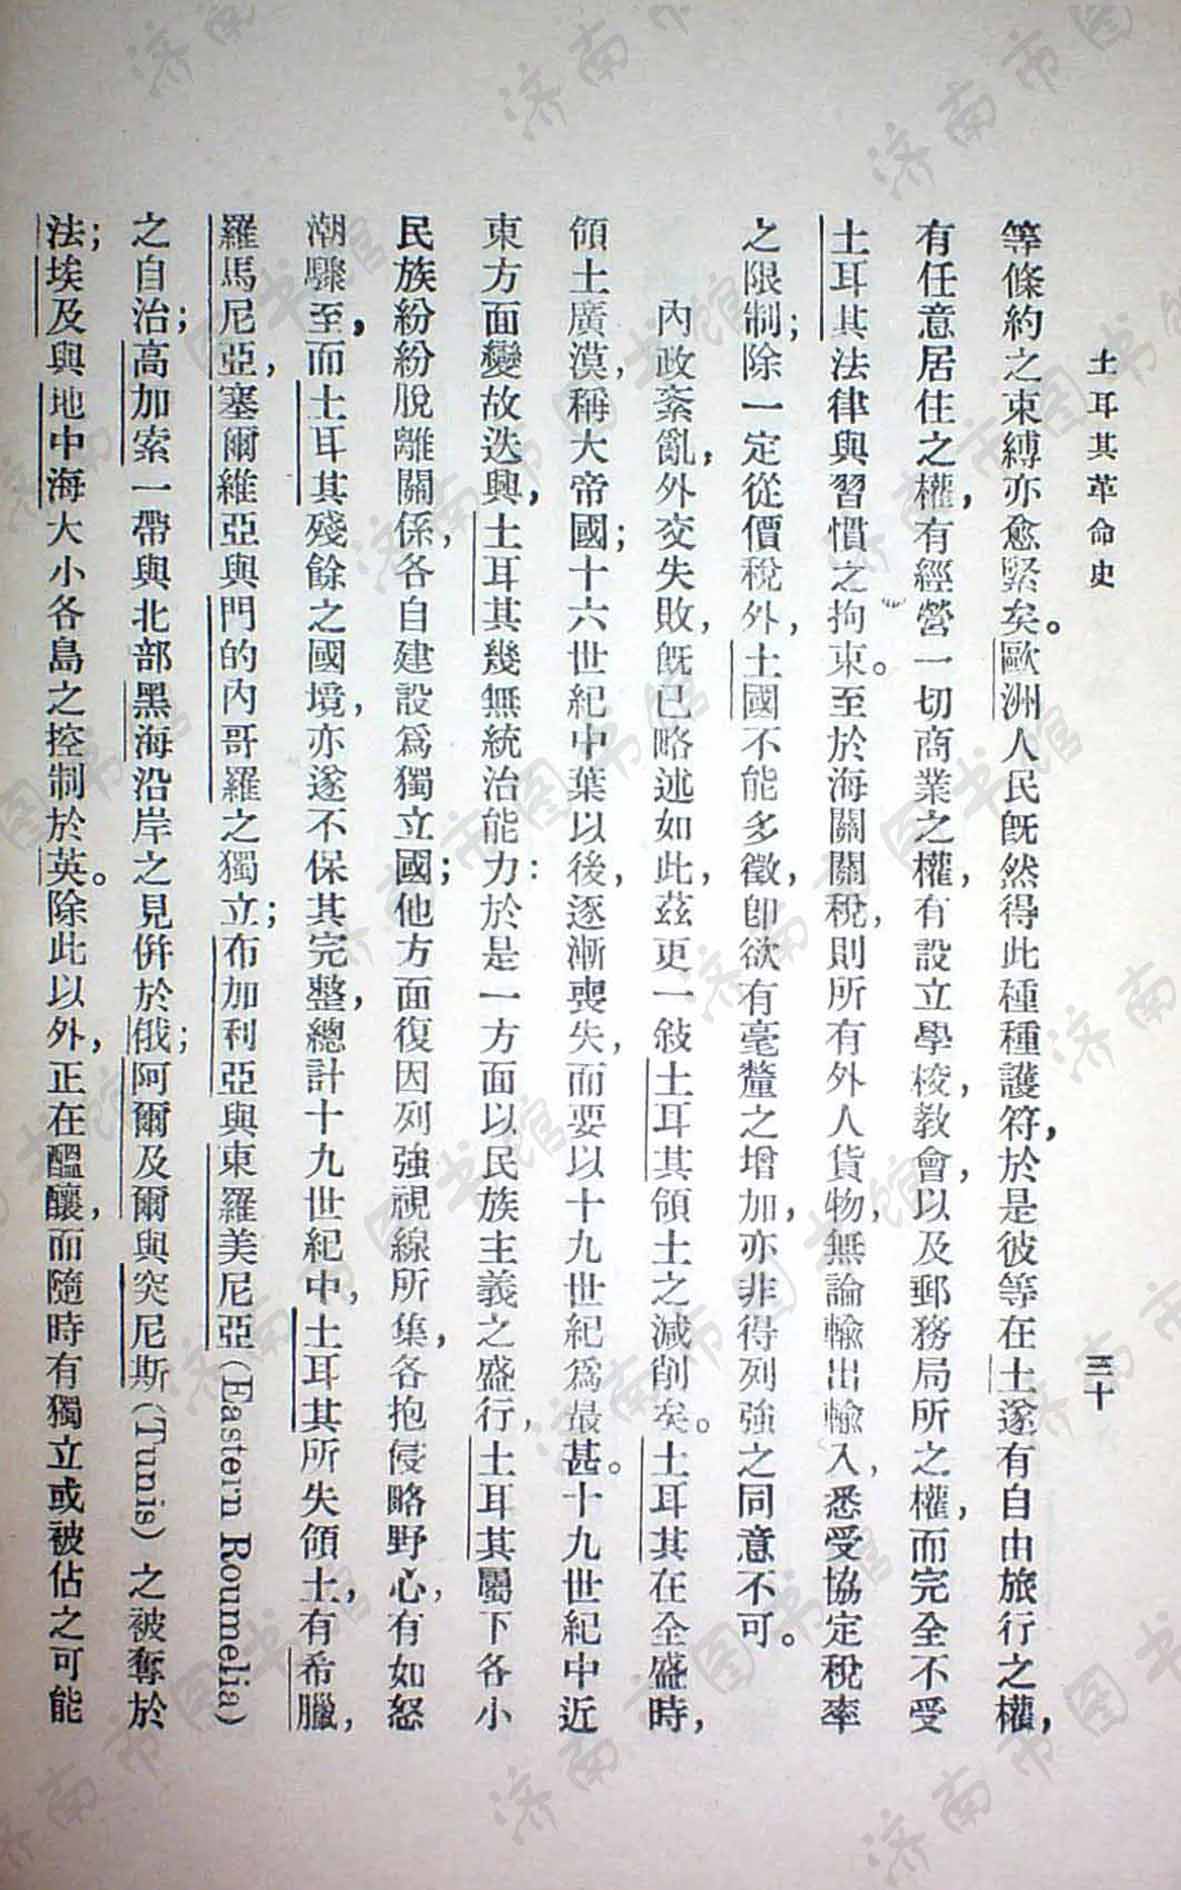 土耳其革命史
三十
等條約之束縛亦愈緊矣。歐洲人民既然得此種種護符，於是彼等在土遂有自由旅行之權，
有任意居住之權，有經營一切商業之權，有設立學校，教會，以及郵務局所之權，而完全不受
土耳其法律與習慣之拘束。至於海關關稅，則所有外人貨物，無論輸出輸入，悉受協定稅率
之限制；除一定從價稅外，土國不能多徵，卽欲有毫釐之增加，亦非得列強之同意不可。
內政紊亂，外交失敗，既已略述如此，茲更一敍土耳其領土之減削矣。土耳其在全盛時，
領土廣漠，稱大帝國；十六世紀中葉以後，逐漸喪失，而要以十九世紀爲最甚。十九世紀中近
東方面變故迭興，土耳其幾無統治能力：於是一方面以民族主義之盛行，土耳其屬下各小
民族紛紛脫離關係，各自建設爲獨立國；他方面復因列強視線所集，各抱侵略野心，有如怒
潮驟至，而土耳其殘餘之國境，亦遂不保其完整，總計十九世紀中，土耳其所失領土，有希臘，
羅馬尼亞，塞爾維亞與門的內哥羅之獨立；布加利亞與東羅美尼亞(Eastern Roumelia)
之自治；高加索一帶與北部黑海沿岸之見併於俄；阿爾及爾與突尼斯(Tunis)之被奪於
法；埃及與地中海大小各島之控制於英。除此以外，正在醞釀，而隨時有獨立或被佔之可能
济南市图书馆